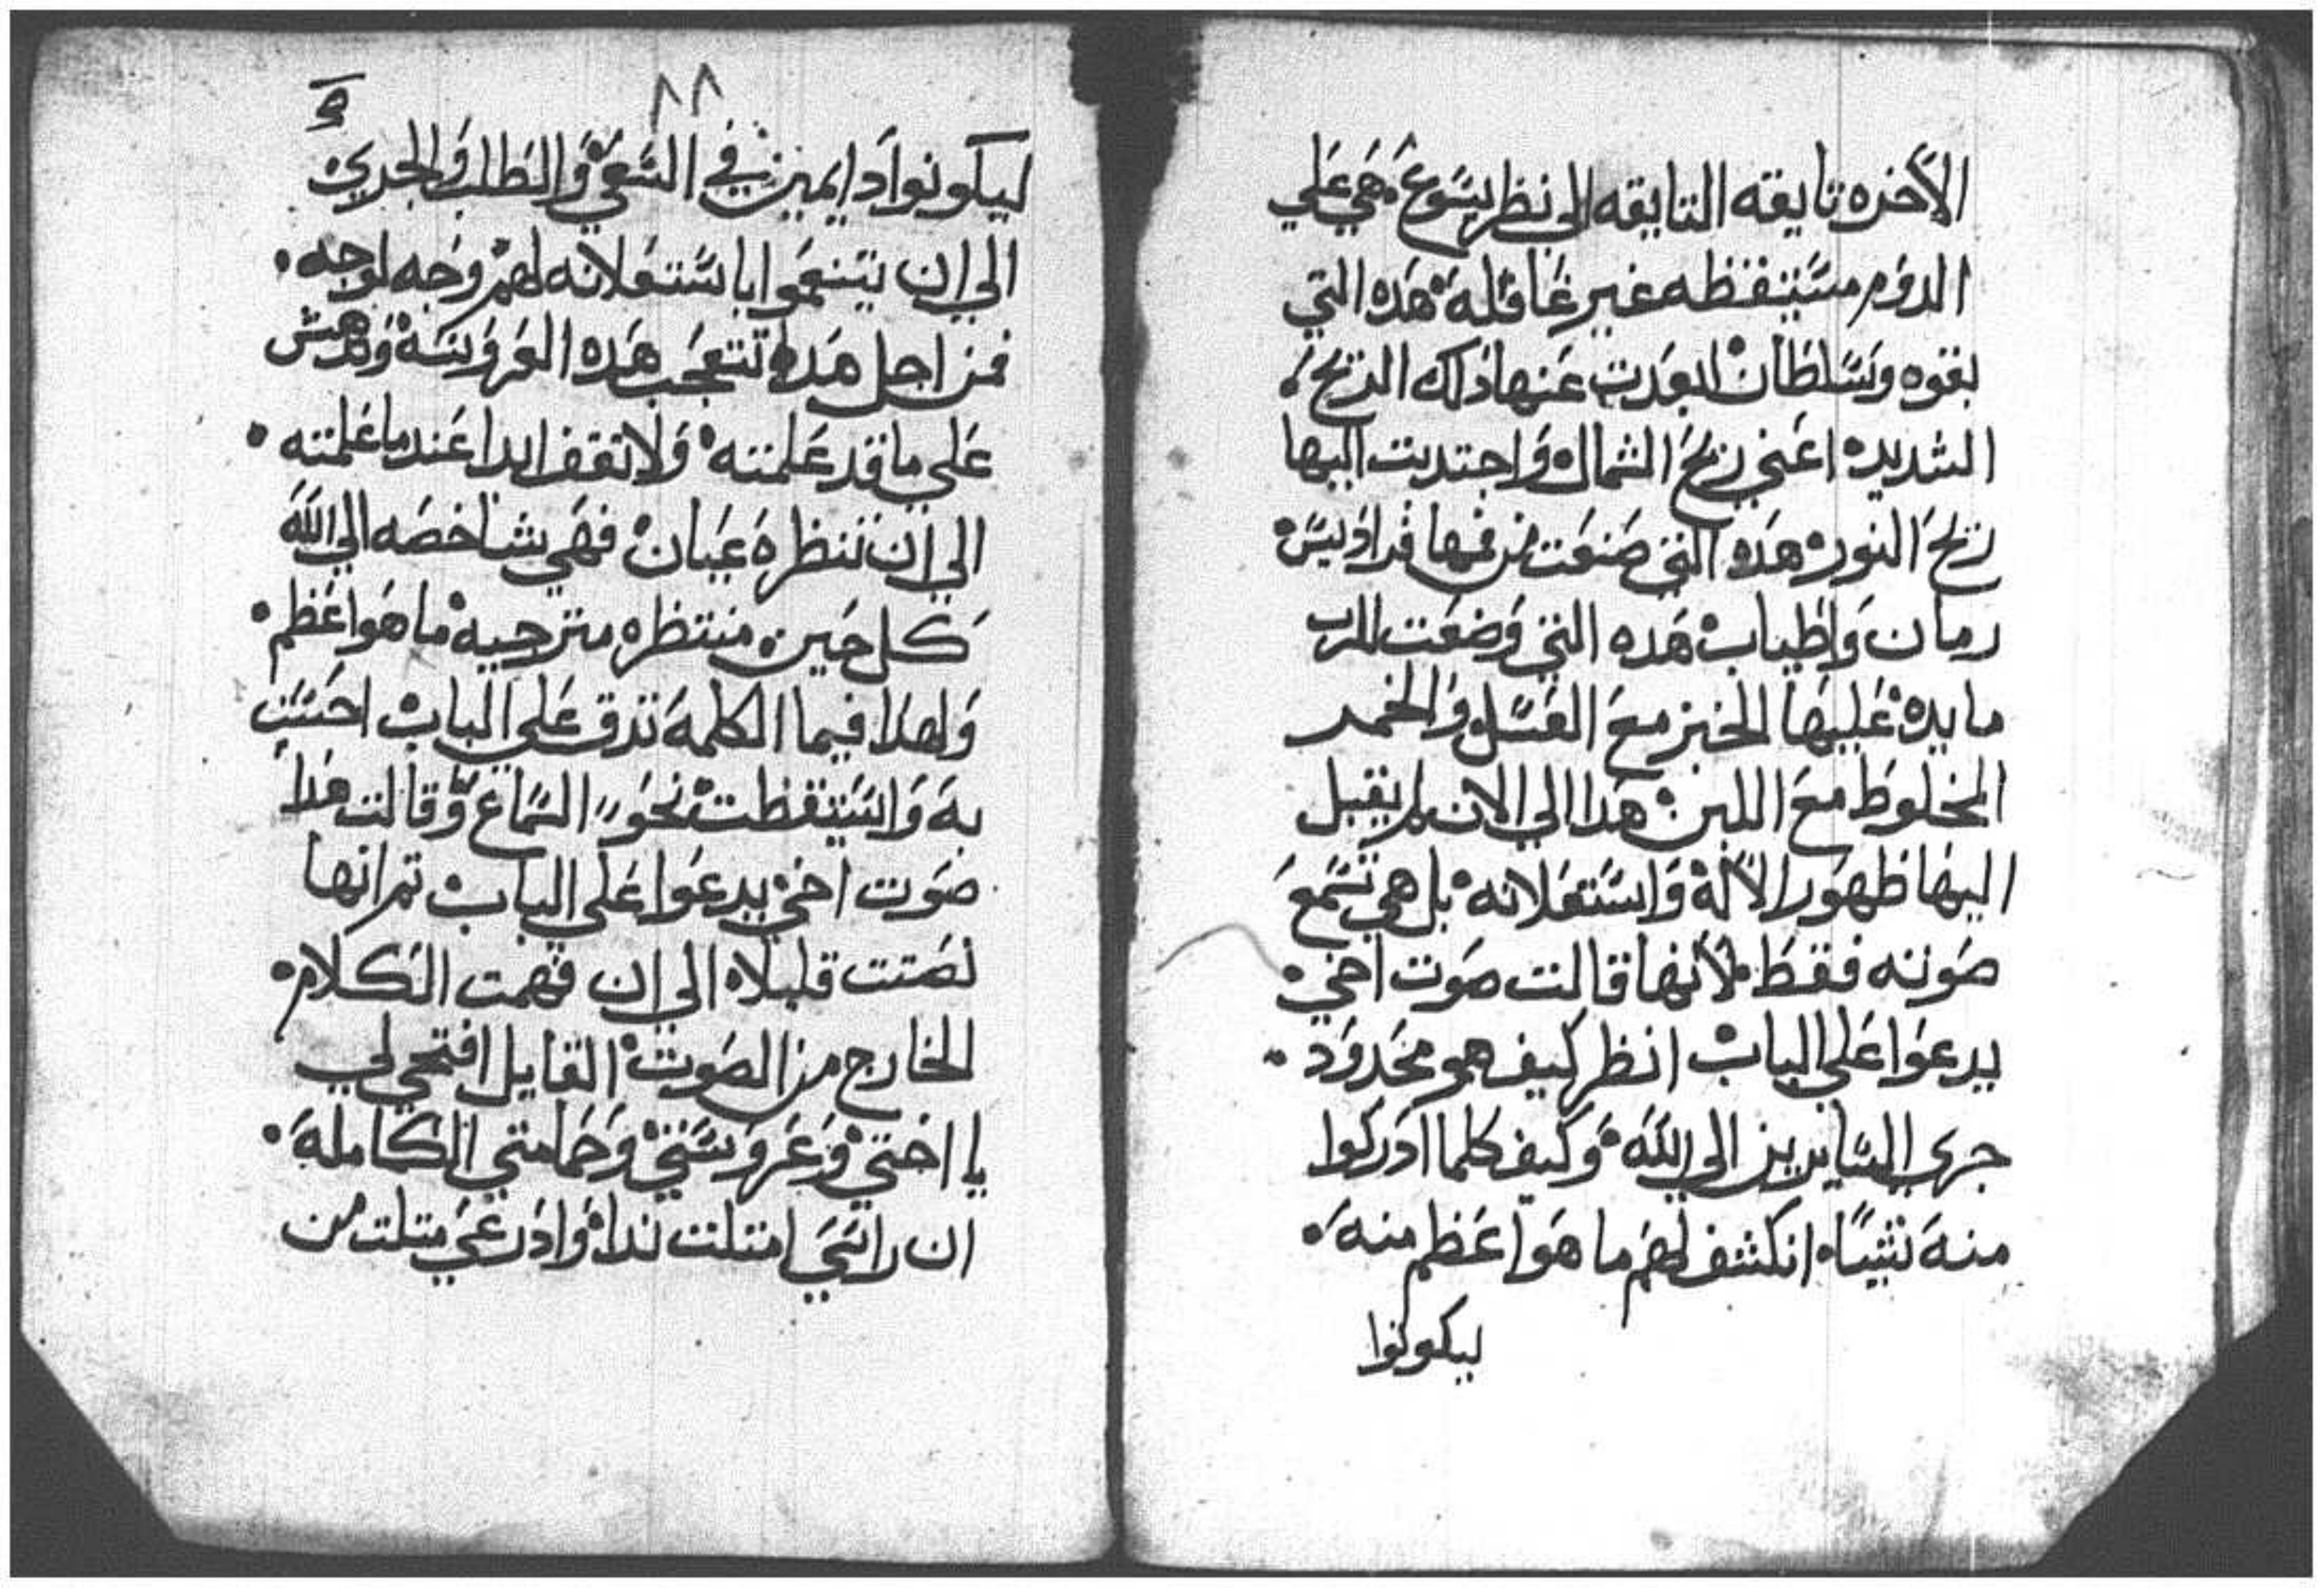 الآخره تايقه التايقه الي نظر يسوع هي علي
الدوم مستيقظه غير غافله هده التي
بقوه وسلطان ابعدت عنها داك الريح
الشديد اعني ريح الشمال واجتدبت اليها
ريح النور هده التي صنعت من فمها فراديس
رمان واطياب هده التي وضعت للرب
مايده عليها الخبز مع العسل والخمر
المخلوط مع اللبن هدا الي الان لم يقبل
اليها ظهور الاله واستعلانه بل هي تسمع
صوته فقط لانها قالت صوت اخي
يدعوا علي الباب انظر كيف هو محدود
جري السايرين الي الله وكيف كلما ادركوا
منه شيا انكشف لهم ما هو اعظم منه
ليكونوا
٨٨
ليكونوا دايمين في السعي والطلب والجري
الي ان يتنعموا باستعلانه لهم وجه لوجه
فمن اجل هدا تتعجب هده العروسه وتدهش
علي ما قد علمته ولا تقف ابدا عند ما علمته
الي ان تنظره عيان فهي شاخصه الي الله
كل حين منتظره مترجيه ما هو اعظم
ولهدا فيما الكلمه تدق علي الباب احست
به واستيقظت نحو السماع وقالت هدا
صوت اخي يدعوا علي الباب تم انها
نصتت قليلا الي ان فهمت الكلام
الخارج من الصوت القايل افتحي لي
يا اختي وعروستي وحمامتي الكامله
ان راسي امتلت ندا وادرعي متلت من